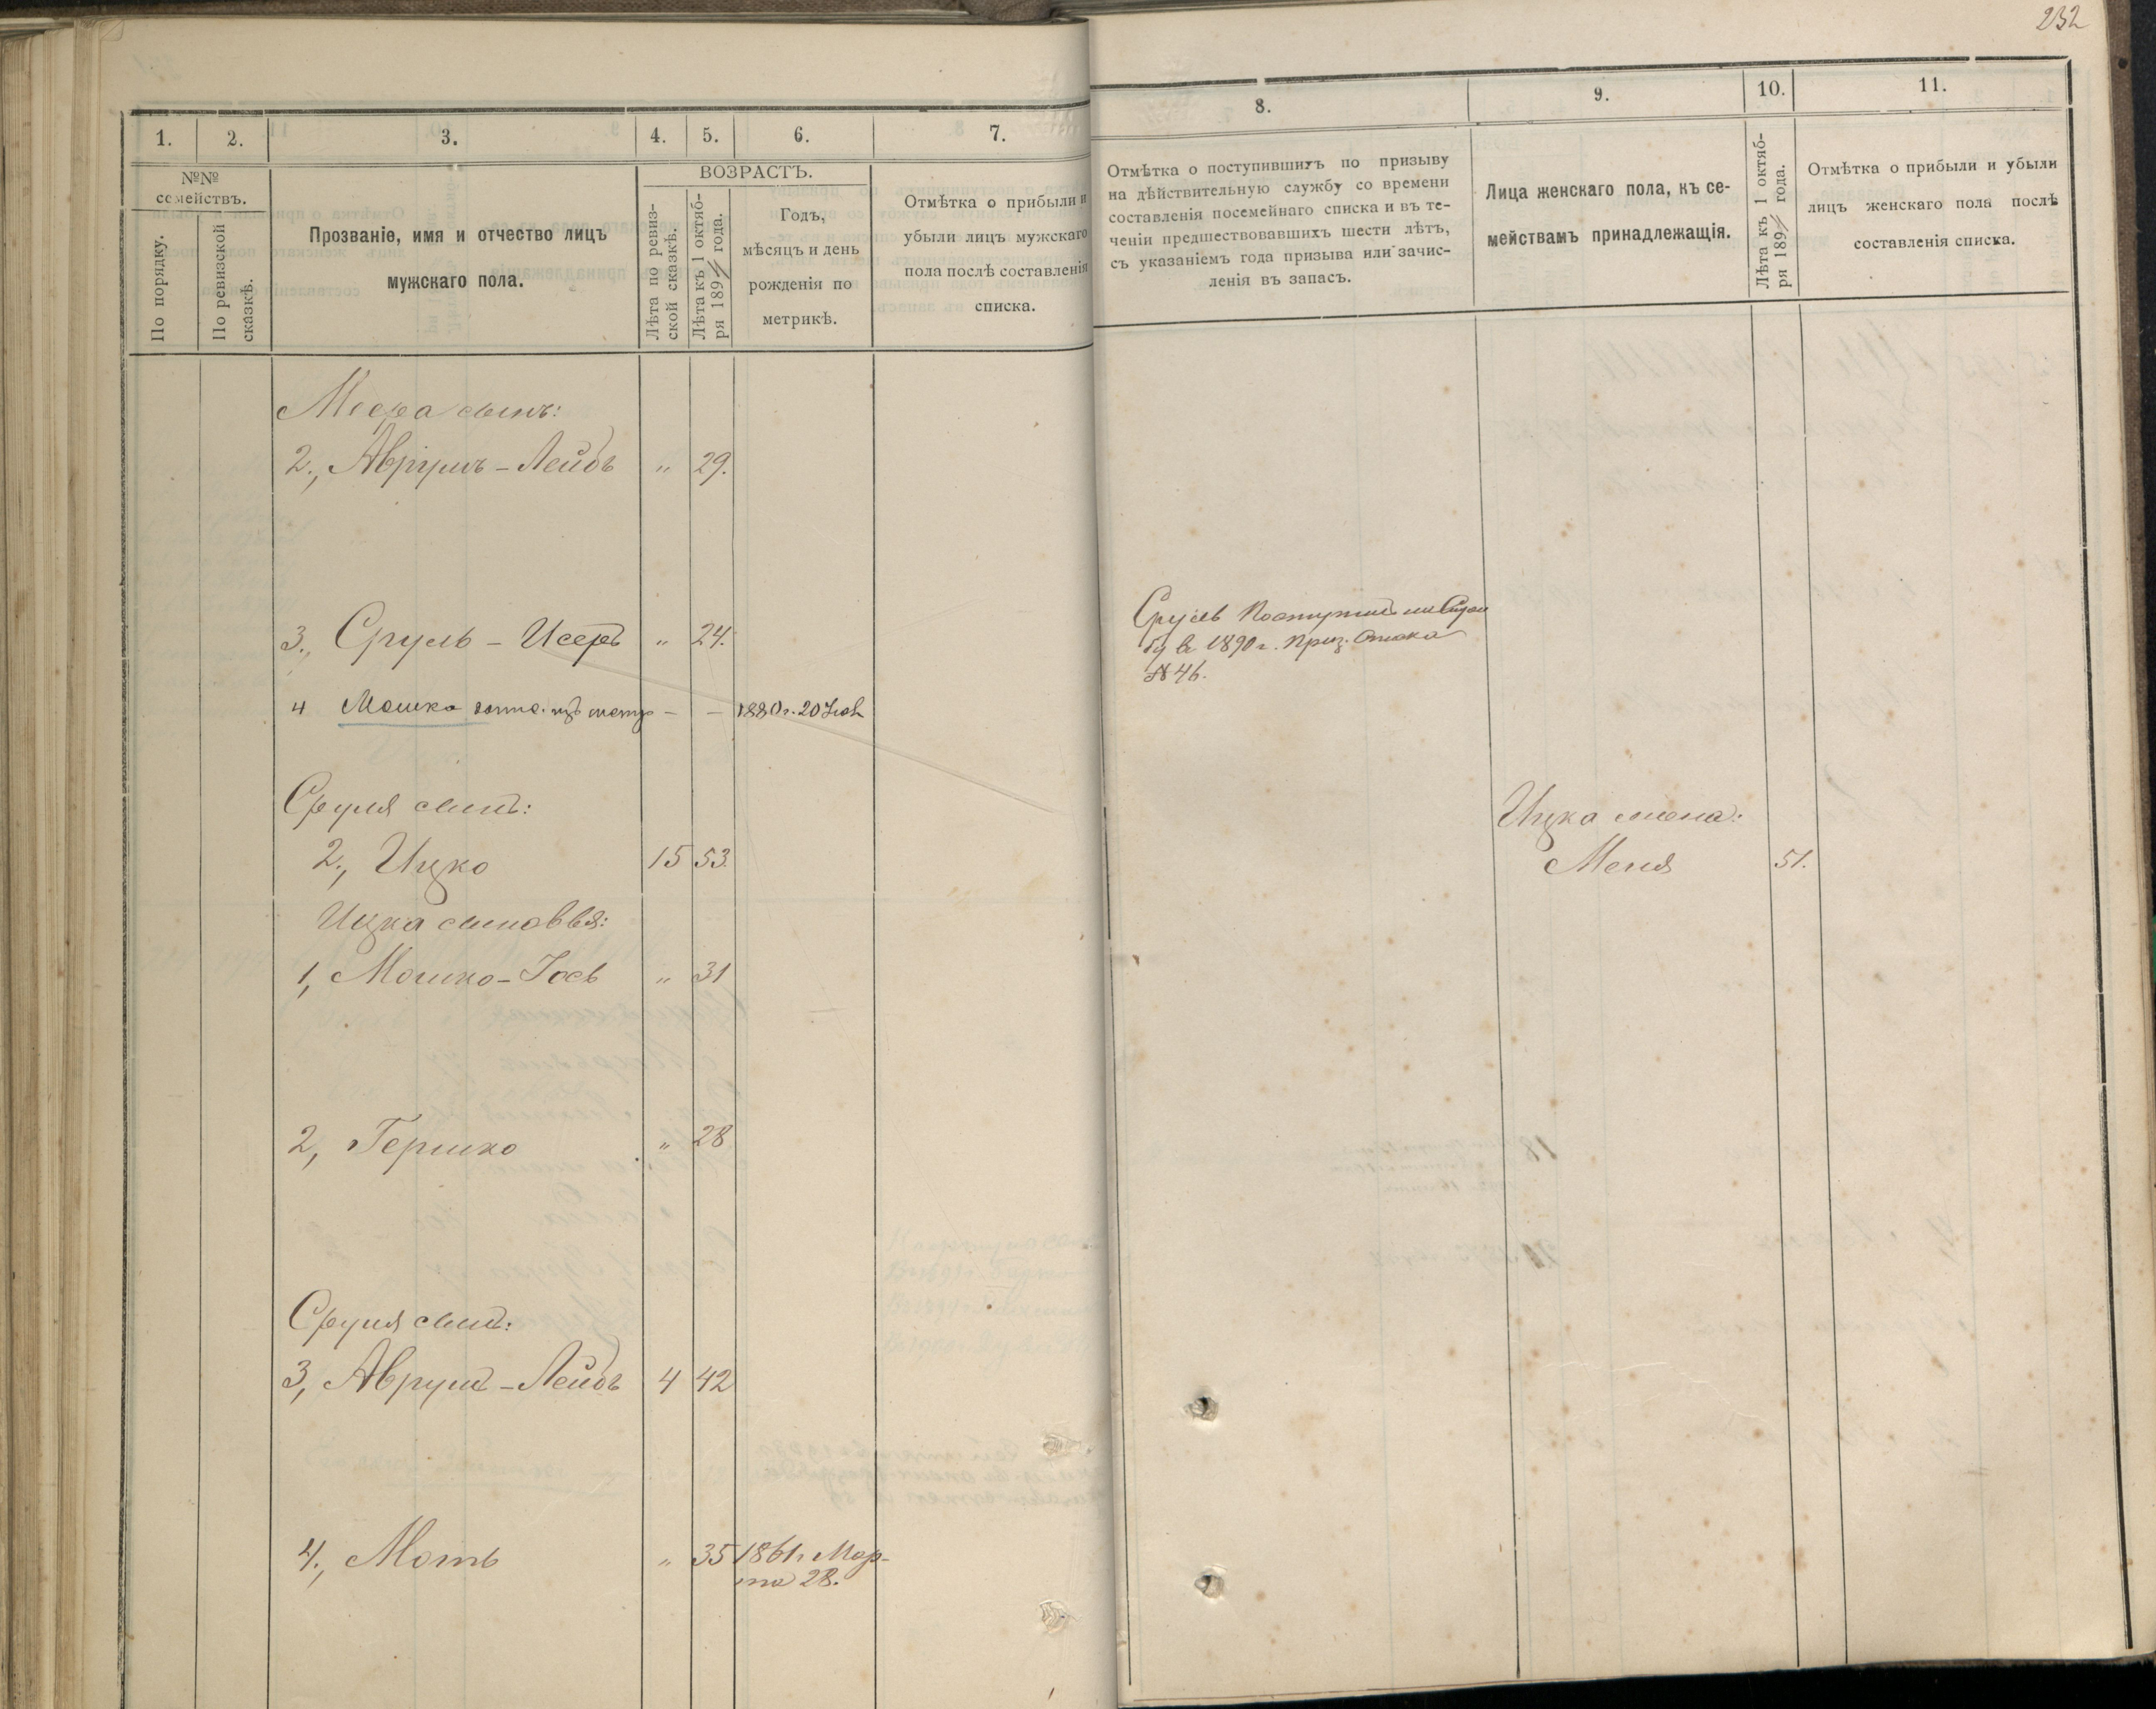 232
1. 2. 3. 4. 5. 6. 7.
№№ семействъ.
По порядку.
По ревизской сказкѣ.
Прозваніе, имя и отчество лицъ
мужскаго пола.
ВОЗРАСТЪ.
Лѣта по ревиз-
ской сказкѣ.
Лѣта къ 1 октяб-
ря 189 года.
Годъ,
мѣсяцъ и день
рожденія по
метрикѣ.
Отмѣтка о прибыли и
убыли лицъ мужскаго
пола послѣ составленія
списка.
8. 9. 10. 11.
Отмѣтка о поступившихъ по призыву
на дѣйствительную службу со времени
составленія посемейнаго списка и въ те-
ченіи предшествовавшихъ шести лѣтъ,
съ указаніемъ года призыва или зачис-
ленія въ запасъ.
Лица женскаго пола, къ се-
мействамъ принадлежащія.
Лѣта къ 1 октяб-
ря 189 года.
Отмѣтка о прибыли и убыли
лицъ женскаго пола послѣ
составленія списка.
сынъ:
2., Аврумъ-Лейбъ " 29.
3., Сруль-Исеръ " 24.
Сруль Поступилъ на Служ
бу въ 1890 г. Приз. Списка
№ 46.
4 Мошко - - 1880 г. 20
Сруля сынъ:
2., Ицко 15 53.
Ицка жена:
Меня 51.
Ицка сыновья:
1, Мошко-Іось " 31
2, Гершко " 28
Сруля сынъ:
3, Аврумъ-Лейбъ 4 42
4., Моть " 35 1861 г. Мар-
та 28.